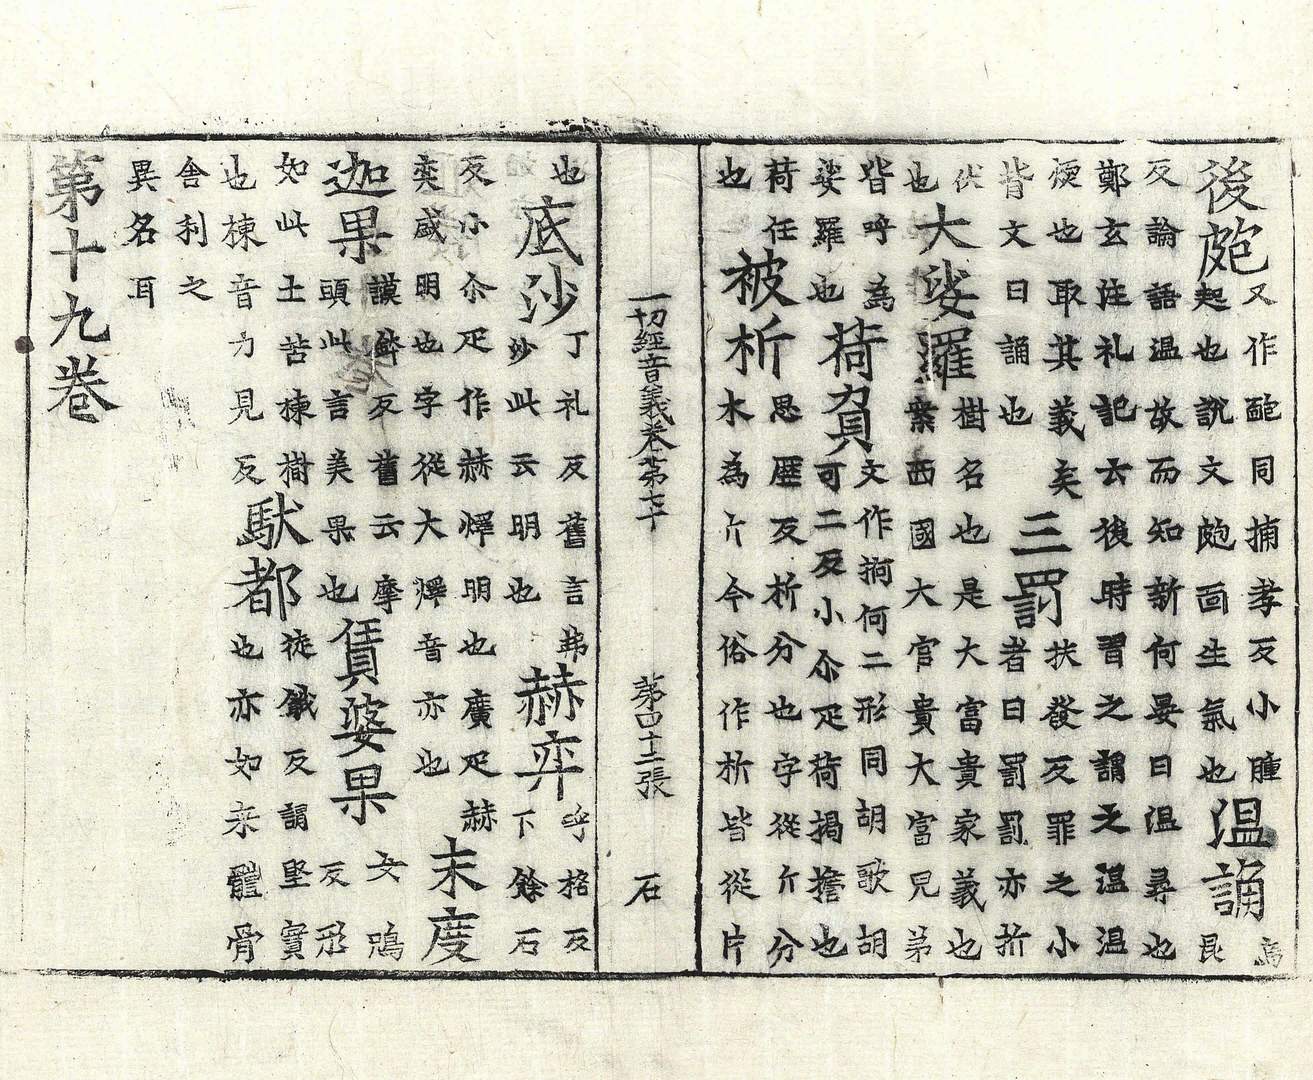 後皰又作靤同捕孝反小腫起也說文皰面生氣也溫誦烏昆
反論語溫故而知新何晏曰溫尋也鄭玄注礼記云後時習之謂之溫溫
煗也取其義矣背文曰誦也三罰扶發反罪之小者曰罰罰亦折
伏也大娑羅樹名也是大富貴家義也案西國大官貴大富兒弟
皆呼為娑羅也荷負文作抲何二形同胡歌胡可二反小尒疋荷揭擔也
荷任也被析思歷反析分也字從斤分木為斤今俗作折皆從片
一切經音義卷第七十 第四十二張 石
也底沙丁礼反舊言弗沙此云明也赫弈呼格反下餘石
反小尒疋作赫㷸明也廣疋赫奕盛明也字從大㷸音亦也末度
迦果謨鉢反舊云摩頭此言美果也賃婆果女鴆反形
如此土苦楝樹也楝音力見反馱都徒餓反謂堅實也亦如来體骨
舍利之異名耳
第十九卷